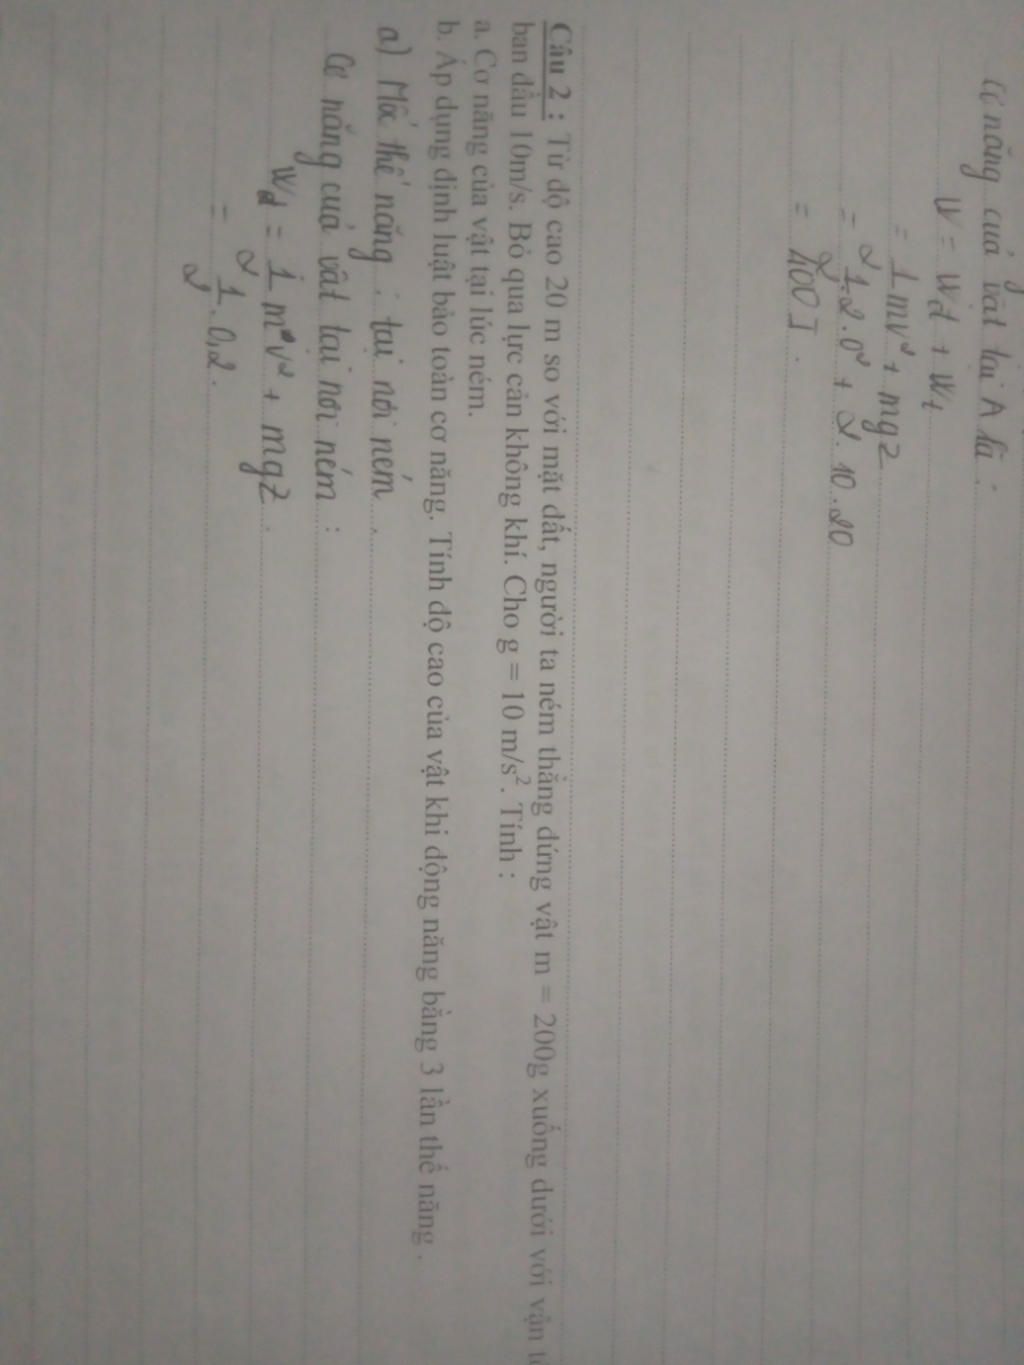 Cơ năng của vật tại A là :
W = Wđ + Wt
= 1/2 mv² + mgz
= 1/2 . 2 . 0² + 2 . 10 . 20
= 400 J .
Câu 2 : Từ độ cao 20 m so với mặt đất, người ta ném thẳng đứng vật m = 200g xuống dưới với vận
ban đầu 10m/s. Bỏ qua lực cản không khí. Cho g = 10 m/s². Tính :
a. Cơ năng của vật tại lúc ném.
b. Áp dụng định luật bảo toàn cơ năng. Tính độ cao của vật khi động năng bằng 3 lần thế năng .
a) Mốc thế năng : tại nơi ném .
Cơ năng của vật tại nơi ném :
Wđ = 1/2 mv² + mgz .
= 1/2 . 0,2 .